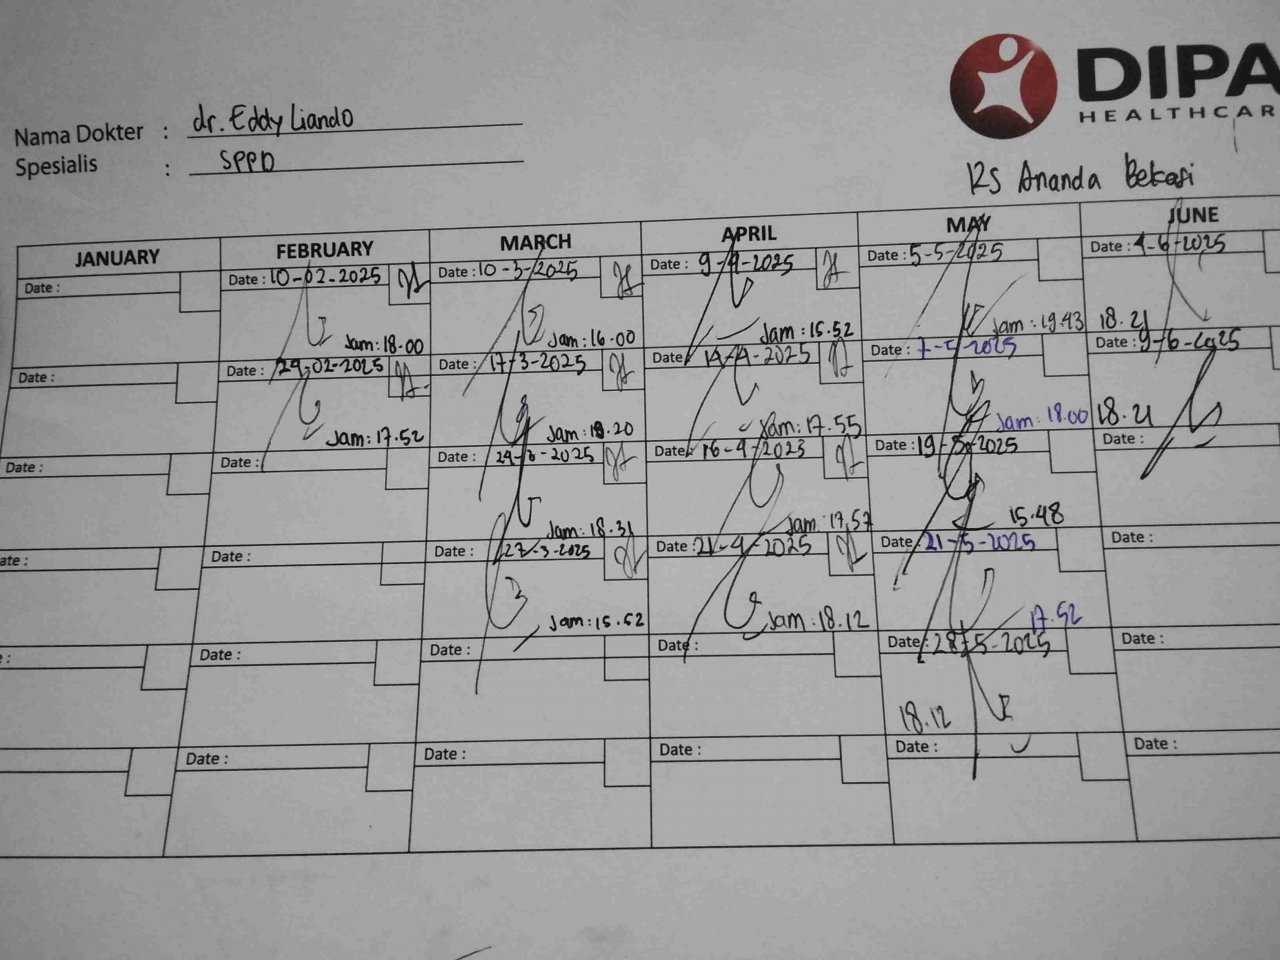 DIPA
HEALTHCAR
Nama Dokter : dr. Eddy Liando
Spesialis : SPPD
RS Ananda Bekasi
JANUARY FEBRUARY MARCH APRIL MAY JUNE
Date : Date : 10-02-2025 Date : 10-3-2025 Date : 9-4-2025 Date : 5-5-2025 Date : 4-6-2025
Jam: 18.00 Jam: 16.00 Jam: 15.52 Jam: 19.43 18.21
Date : Date : 24-02-2025 Date : 17-3-2025 Date : 14-4-2025 Date : 7-5-2025 Date : 9-6-2025
Jam: 17.52 Jam: 18.20 Jam: 17.55 Jam: 18.00 18.21
Date : Date : Date : 24-3-2025 Date : 16-4-2023 Date : 19-5-2025 Date :
Jam: 18.31 Jam: 17.57 15.48
ate : Date : Date : 27-3-2025 Date : 21-4-2025 Date : 21-5-2025 Date :
Jam: 15.52 Jam: 18.12 17.52
e : Date : Date : Date : Date : 28-5-2025 Date :
18.12
Date : Date : Date : Date : Date :